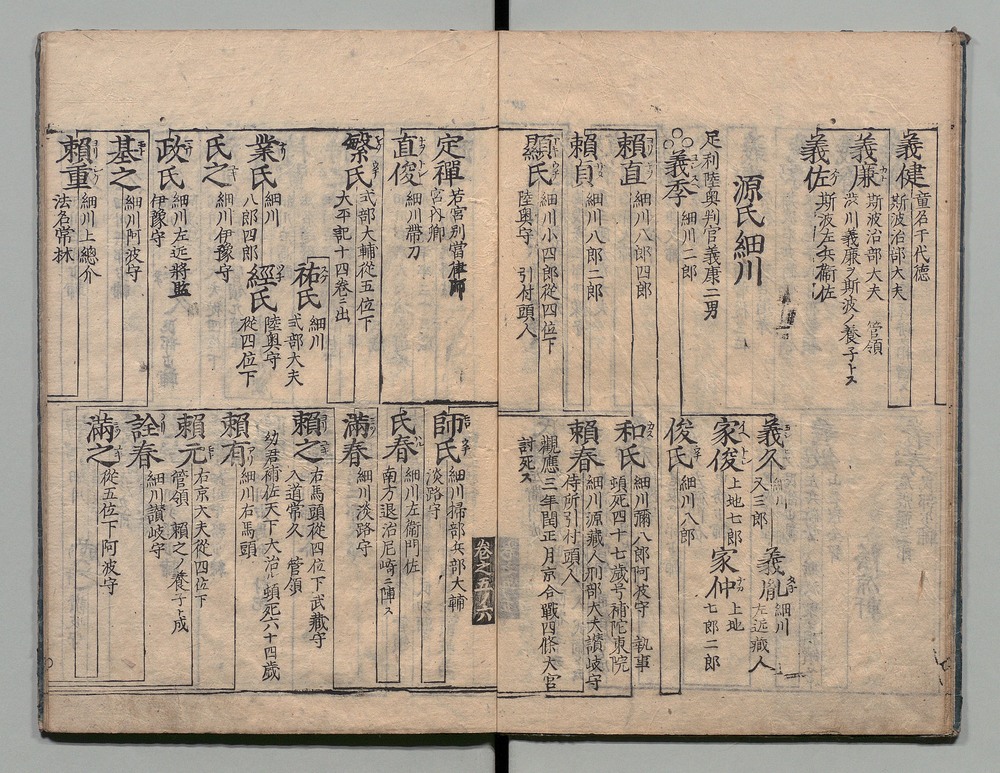 義健
童名千代徳
斯波治部大夫
義廉
斯波治部大夫 管領
渋川義廉ヲ斯波ノ養子トス
義佐
斯波左兵衛佐
源氏細川
足利陸奥判官義康二男
義季
細川二郎
頼直
細川八郎四郎
頼貞
細川八郎二郎
顕氏
細川小四郎従四位下
陸奥守 引付頭人
義久
細川
又三郎
義胤
細川
左近蔵人
家俊
上地七郎
家仲
上地
七郎二郎
俊氏
細川八郎
和氏
細川彌八郎阿波守 執事
頓死四十七歳号補陀東院
頼春
細川源蔵人刑部大夫讃岐守
侍所引付頭人
觀應三年閏正月京合戰四條大宮
討死ス
定禪
若宮別當律師
宮内卿
直俊
細川帶刀
繁氏
式部大輔從五位下
大平記十四卷ニ出
祐氏
細川
式部大夫
業氏
細川
八郎四郎
經氏
陸奥守
從四位下
氏之
細川伊豫守
政氏
細川左近將監
伊豫守
基之
細川阿波守
頼重
細川上總介
法名常林
卷之五ノ六
師氏
細川掃部兵部大輔
淡路守
氏春
細川左衛門佐
南方退治尼崎ニ陣ス
滿春
細川淡路守
頼之
右馬頭從四位下武藏守
入道常久 管領
幼君補佐天下大治ル頓死六十四歳
頼有
細川右馬頭
頼元
右京大夫從四位下
管領 頼之ノ養子ト成
詮春
細川讃岐守
滿之
從五位下阿波守